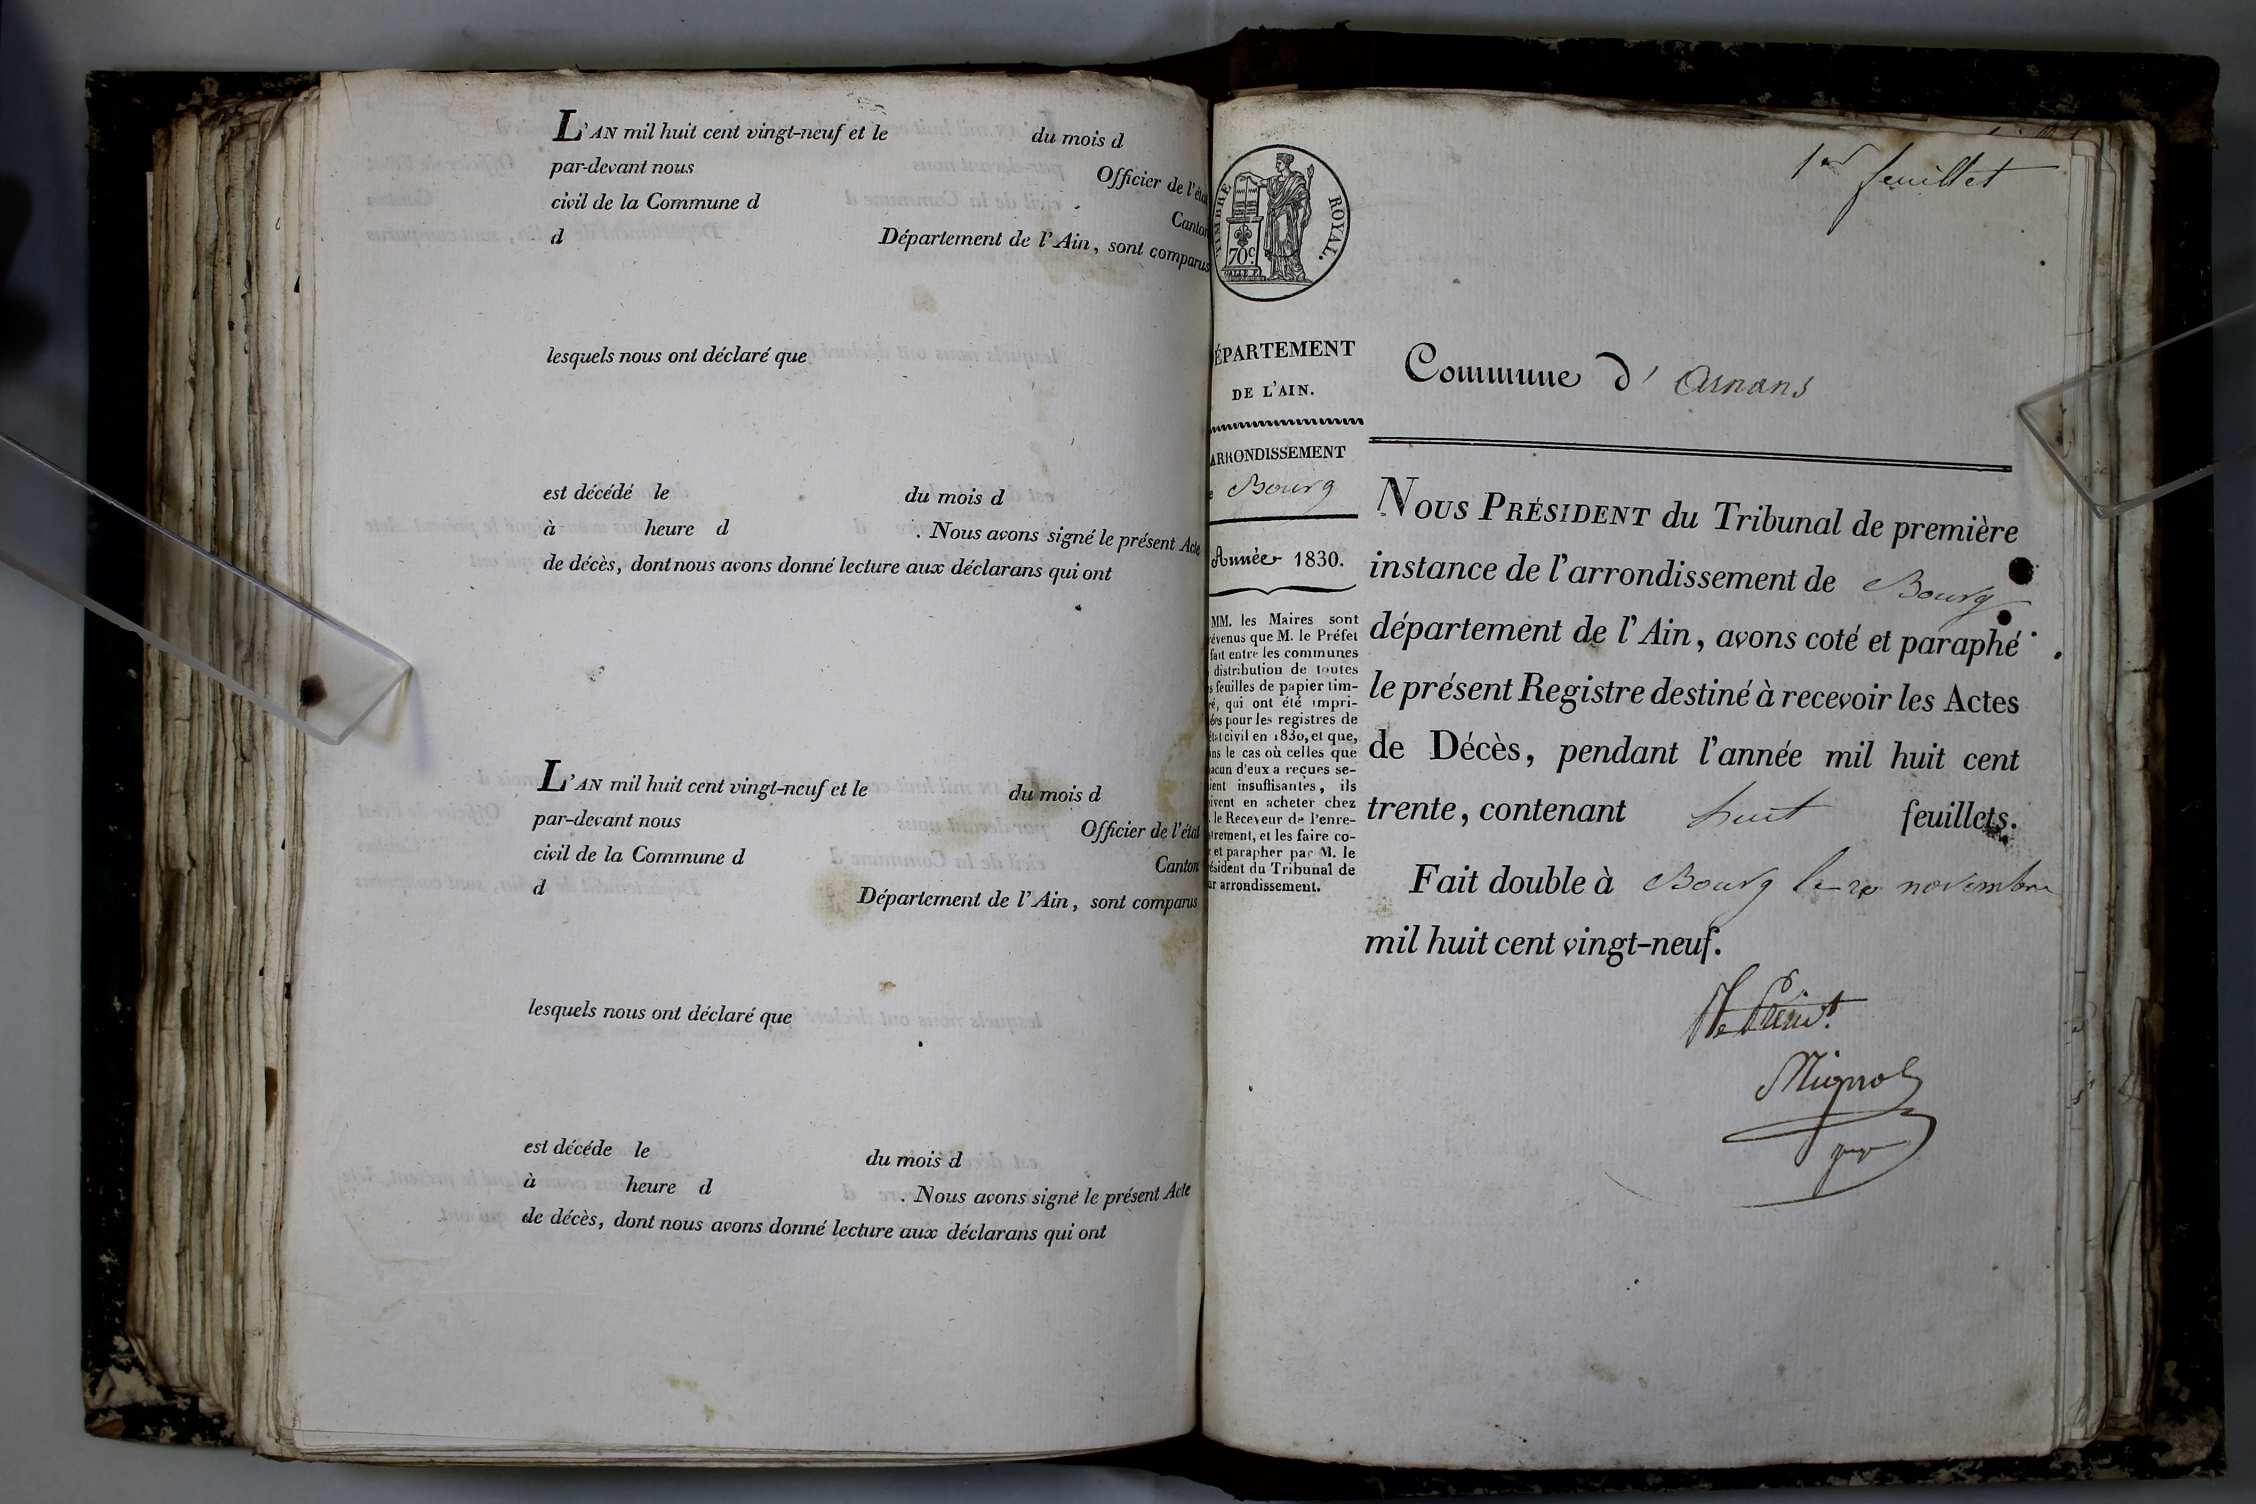 L'AN mil huit cent vingt-neuf et le du mois d
par-devant nous Officier de l'état
civil de la Commune d Canton
d Département de l'Ain, sont comparus
lesquels nous ont déclaré que
est décédé le du mois d
à heure d . Nous avons signé le présent Acte
de décès, dont nous avons donné lecture aux déclarans qui ont
L'AN mil huit cent vingt-neuf et le du mois d
par-devant nous Officier de l'état
civil de la Commune d Canton
d Département de l'Ain, sont comparus
lesquels nous ont déclaré que
est décéde le du mois d
à heure d . Nous avons signé le présent Acte
de décès, dont nous avons donné lecture aux déclarans qui ont
1er feuillet
TIMBRE ROYAL.
70c.
ÉPARTEMENT
DE L'AIN.
ARRONDISSEMENT
e Bourg
Année 1830.
MM. les Maires sont
évenus que M. le Préfet
fait entre les communes
distribution de toutes
s feuilles de papier tim-
ré, qui ont été impri-
ées pour les registres de
état civil en 1830, et que,
ns le cas où celles que
acun d'eux a reçues se-
ient insuffisantes, ils
ivent en acheter chez
. le Receveur de l'enre-
trement, et les faire co-
r et parapher par M. le
ésident du Tribunal de
ur arrondissement.
Commune d' Arnans
NOUS PRÉSIDENT du Tribunal de première
instance de l'arrondissement de Bourg
département de l'Ain, avons coté et paraphé
le présent Registre destiné à recevoir les Actes
de Décès, pendant l'année mil huit cent
trente, contenant huit feuillets.
Fait double à Bourg le 20 novembre
mil huit cent vingt-neuf.
Mignol